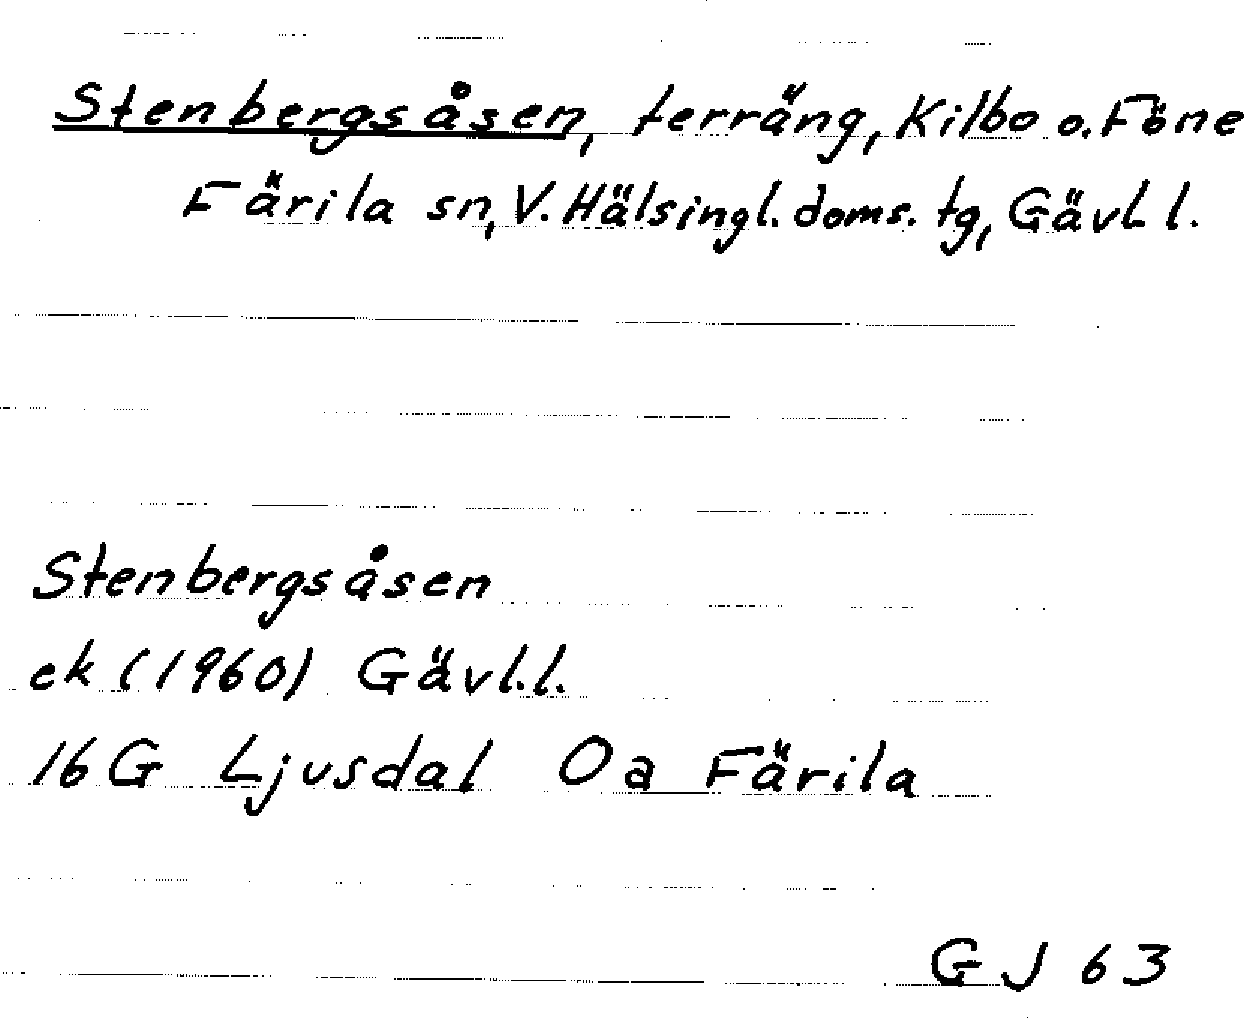 Stenbergsåsen, terräng, Kilbo o. Föne
Färila sn, V. Hälsingl. doms. tg, Gävl. l.
Stenbergsåsen
ek (1960) Gävl.l.
16G Ljusdal Oa Färila
GJ 63